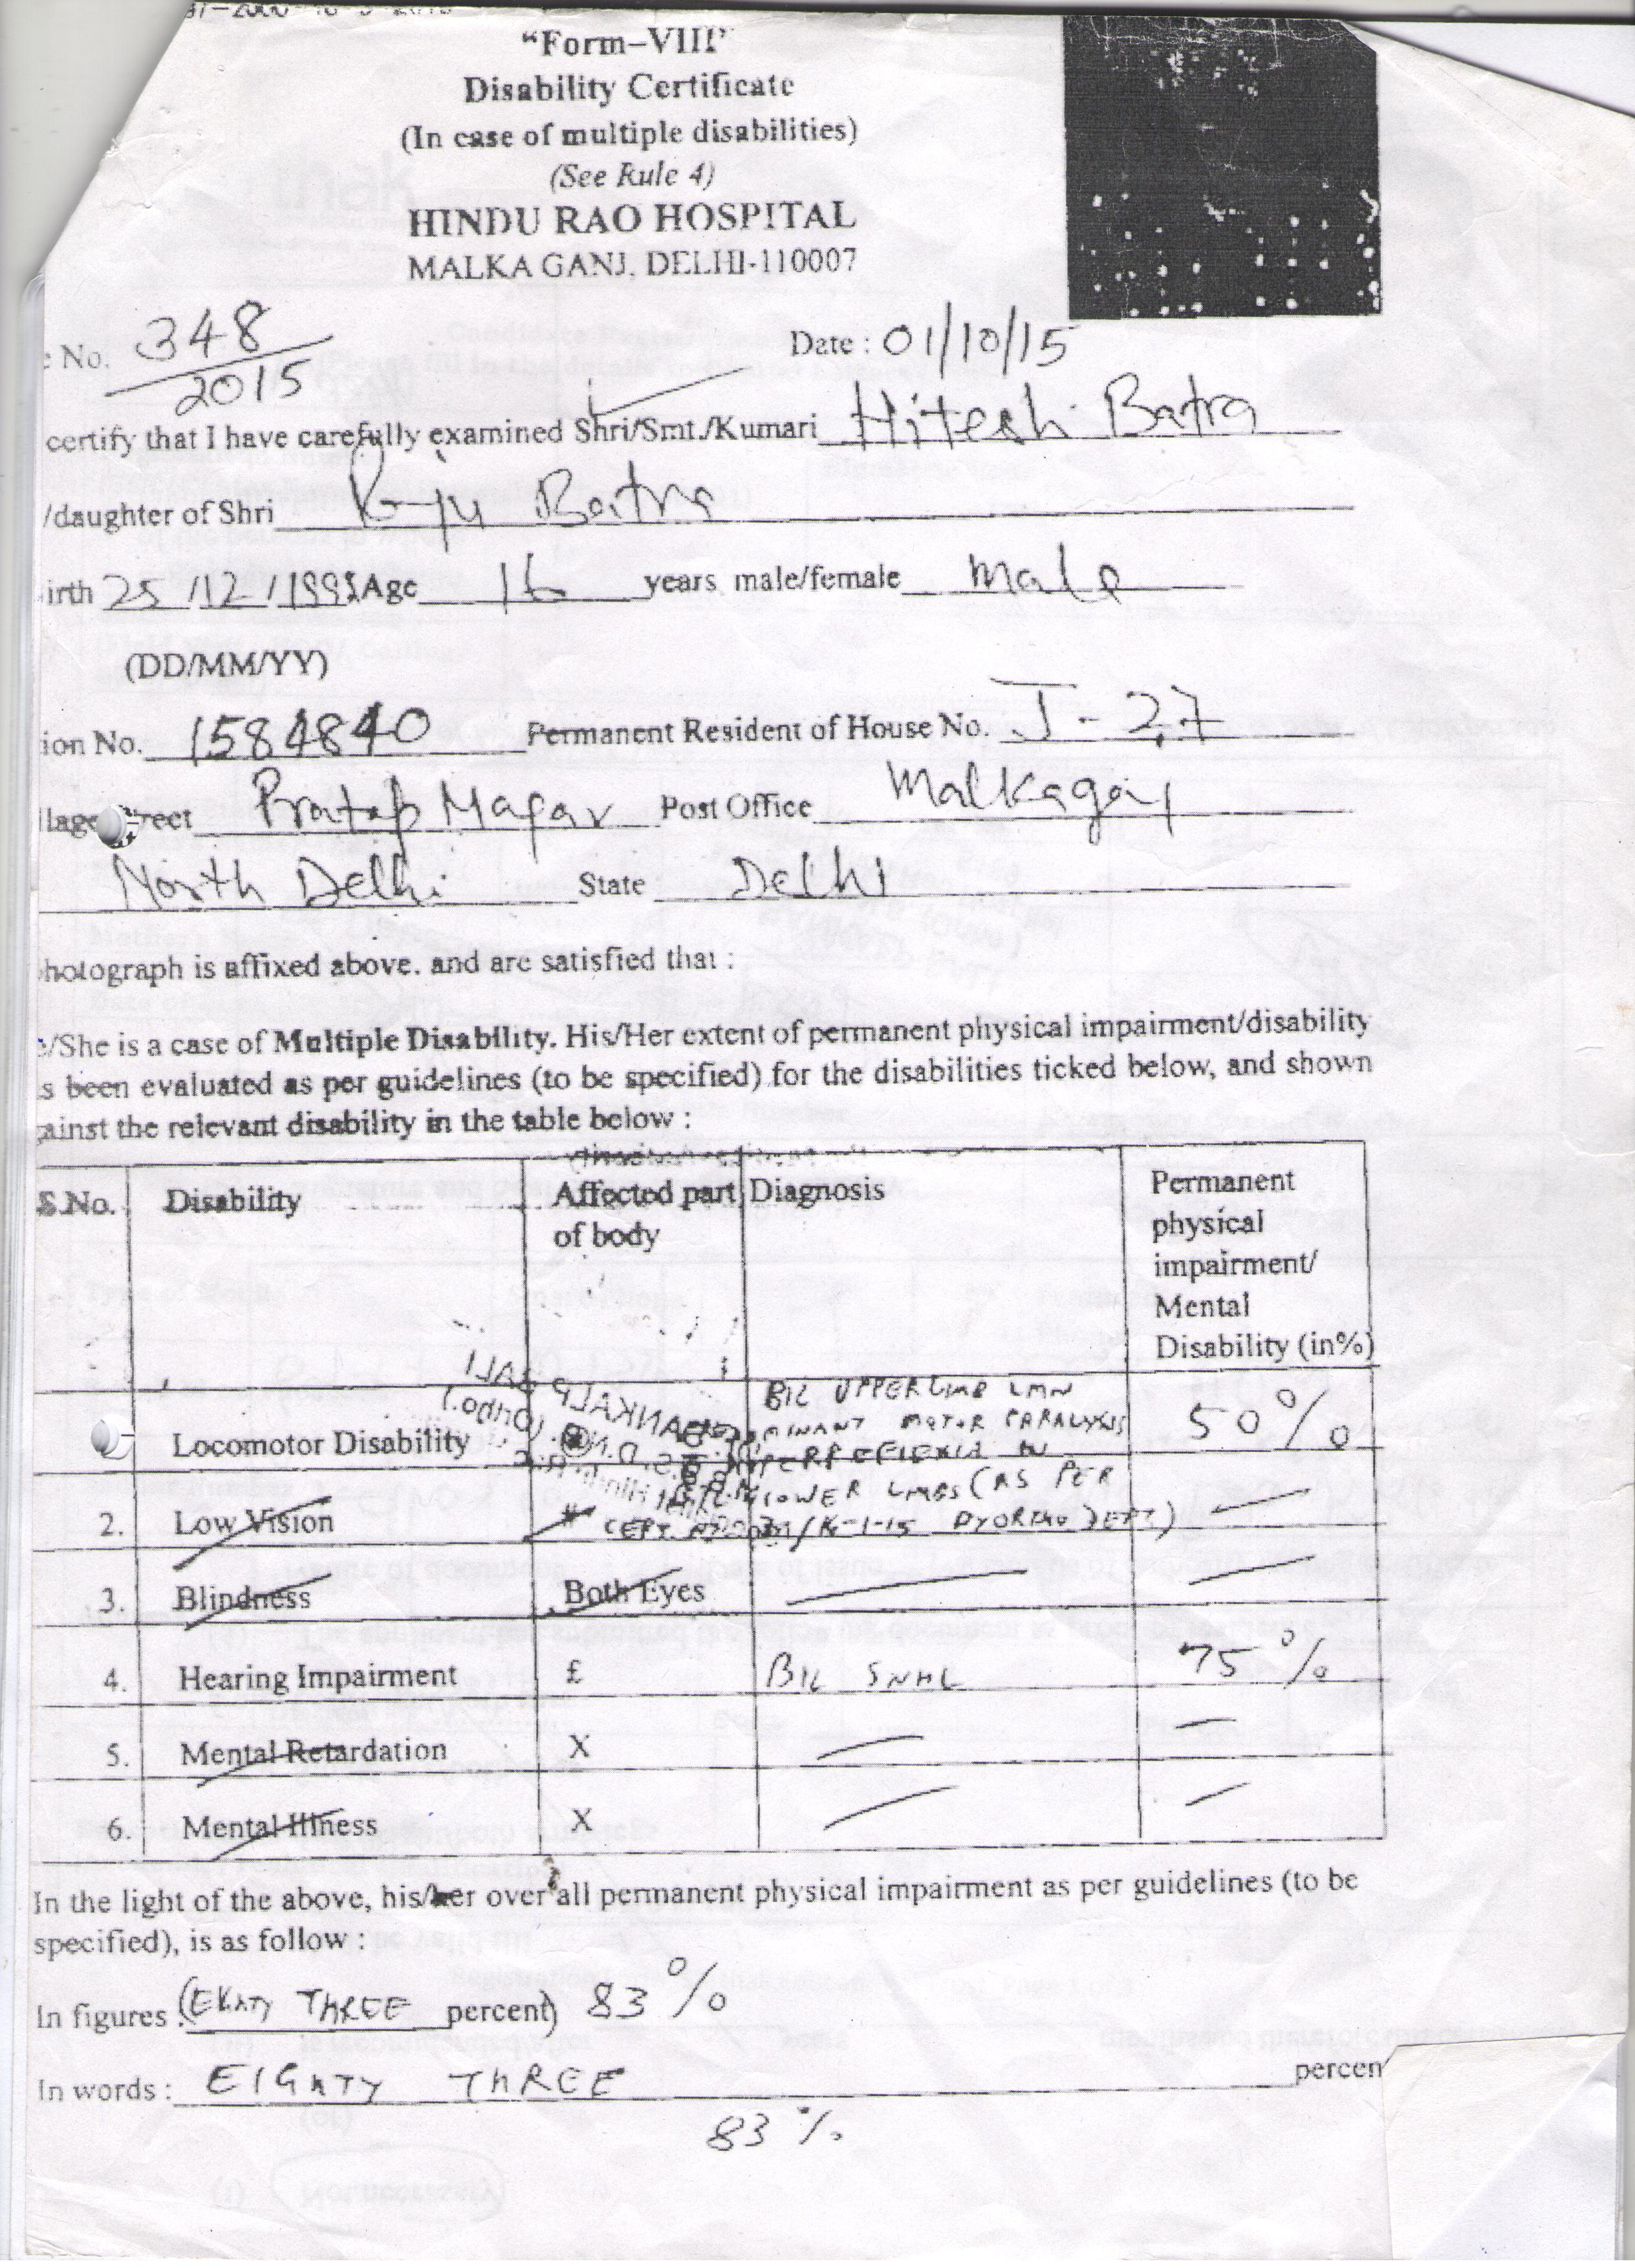 "Form–VIII"
Disability Certificate
(In case of multiple disabilities)
(See Rule 4)
HINDU RAO HOSPITAL
MALKA GANJ, DELHI-110007
No. 348/2015 Date : 01/10/15
certify that I have carefully examined Shri/Smt./Kumari Hitesh Batra
/daughter of Shri Raju Batra
irth 25/12/199 Age 16 years male/female male
(DD/MM/YY)
ion No. 1584840 Permanent Resident of House No. J-27
llage Street Pratap Nagar Post Office Malkaganj
North Delhi State Delhi
hotograph is affixed above. and are satisfied that :
e/She is a case of Multiple Disability. His/Her extent of permanent physical impairment/disability
s been evaluated as per guidelines (to be specified) for the disabilities ticked below, and shown
gainst the relevant disability in the table below :
S.No. Disability Affected part of body Diagnosis Permanent physical impairment/ Mental Disability (in%)
Locomotor Disability @ BIL UPPER LIMB LMN
MOTOR PARALYSIS 50%
HYPERREFLEXIA IN
LOWER LIMBS (AS PER
2. Low Vision # ORTHO DEPT)
3. Blindness Both Eyes
4. Hearing Impairment £ BIL SNHL 75%
5. Mental Retardation X
6. Mental Illness X
In the light of the above, his/her over all permanent physical impairment as per guidelines (to be
specified), is as follow :
In figures :(EIGHTY THREE percent) 83%
In words : EIGHTY THREE percen
83%